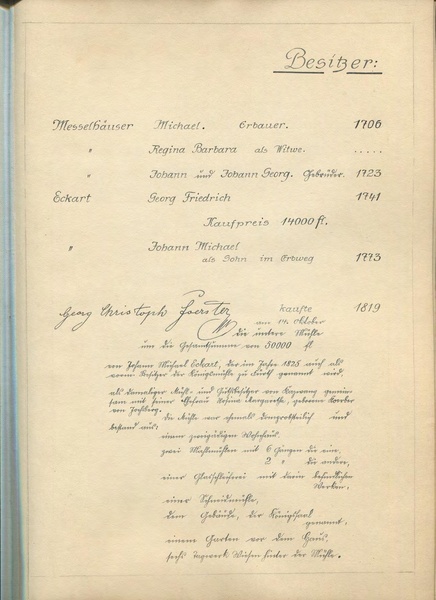 Besitzer:
Messelhäuser Michael. Erbauer. 1706
" Regina Barbara als Witwe. .....
" Johann und Johann Georg. Gebrüder. 1723
Eckart Georg Friedrich 1741
Kaufpreis 14000 fl.
" Johann Michael
als Sohn im Erbweg 1773
Georg Christoph Foerster kaufte 1819
am 14. Oktober
die untere Mühle
um die Gesamtsumme von 30000 fl
von Johann Michael Eckart, der im Jahre 1825 auch als
Besitzer der Königsmühle zu Fürth genannt wird.
als damaliger Mühl- und Gutsbesitzer von
mit seiner Ehefrau Rosina Margaretha, geborene
von
die Mühle war ehemals und
bestand aus:
einem zweigädigen Wohnhaus.
zwei Mahlmühlen mit 6 Gängen die eine,
2 " die andere,
einer Glasschleiferei mit darin befindlichen
Werken,
einer Schneidmühle,
dem Gebäude, der Königssaal
genannt,
einem Garten vor dem Haus,
sechs Tagwerk Wiesen hinter der Mühle.